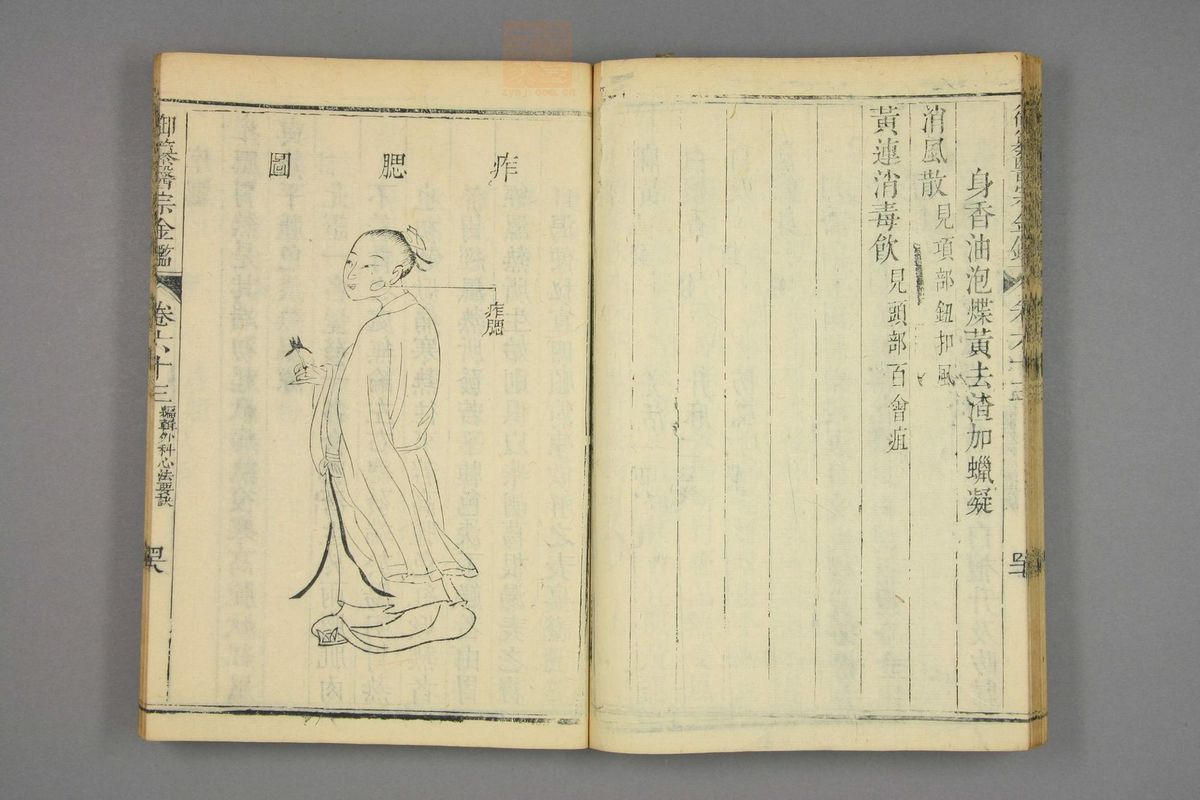 御纂醫宗金鑑 卷六十三
身香油泡煠黃去渣加蠟凝
消風散見項部鈕扣風
黃連消毒飲見頭部百會疽
痄腮圖
痄腮
御纂醫宗金鑑 卷六十三 編輯外科心法要訣 四八